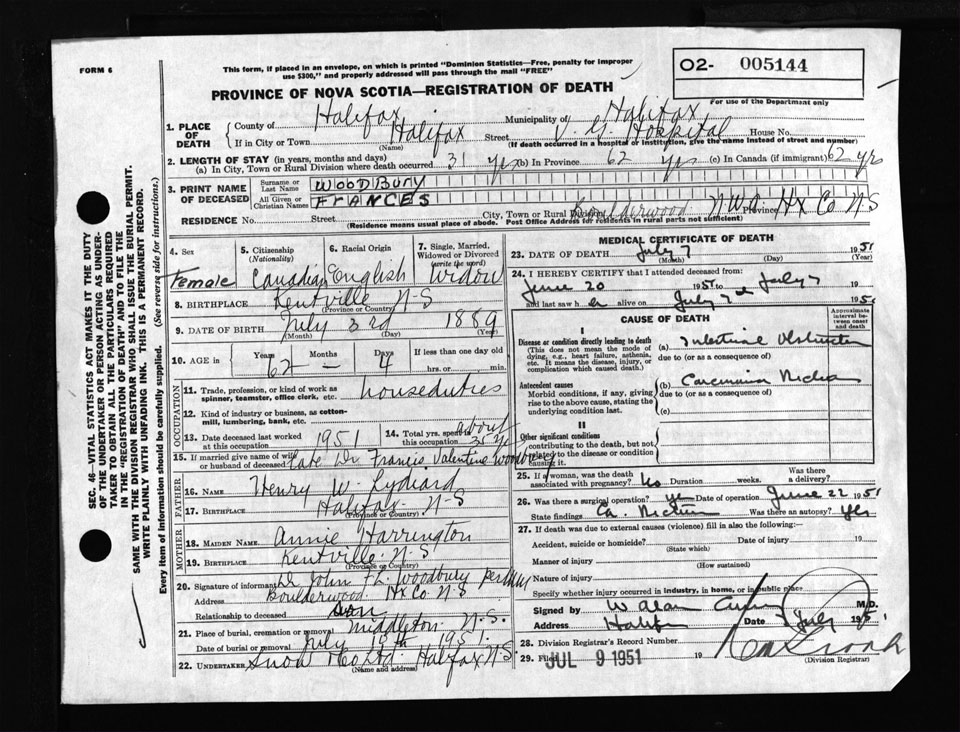 FORM 6
This form, if placed in an envelope, on which is printed "Dominion Statistics—Free, penalty for improper
use $300," and properly addressed will pass through the mail "FREE"
PROVINCE OF NOVA SCOTIA—REGISTRATION OF DEATH
O2- 005144
For use of the Department only
SEC. 46—VITAL STATISTICS ACT MAKES IT THE DUTY
OF THE UNDERTAKER OR PERSON ACTING AS UNDER-
TAKER TO OBTAIN ALL THE PARTICULARS REQUIRED
IN THE "REGISTRATION OF DEATH" AND TO FILE THE
SAME WITH THE DIVISION REGISTRAR WHO SHALL ISSUE THE BURIAL PERMIT.
WRITE PLAINLY WITH UNFADING INK. THIS IS A PERMANENT RECORD.
Every item of information should be carefully supplied. (See reverse side for instructions.)
1. PLACE OF DEATH
County of Halifax Municipality of Halifax
If in City or Town Halifax (Name) Street V. G. Hospital House No.
(If death occurred in a hospital or institution, give the name instead of street and number)
2. LENGTH OF STAY (in years, months and days)
(a) In City, Town or Rural Division where death occurred 31 yrs (b) In Province 62 yrs (c) In Canada (if immigrant) 62 yrs
3. PRINT NAME OF DECEASED
Surname or Last Name WOODBURY
All Given or Christian Names FRANCES
RESIDENCE No. Street City, Town or Rural Division Boulderwood N.W.A. Province Hx Co N S
(Residence means usual place of abode. Post Office Address for residents in rural parts not sufficient)
4. Sex Female
5. Citizenship (Nationality) Canadian
6. Racial Origin English
7. Single, Married, Widowed or Divorced (write the word) Widow
8. BIRTHPLACE Kentville N-S
(Province or Country)
9. DATE OF BIRTH July 3rd 1889
(Month) (Day) (Year)
10. AGE in Years 62 Months – Days 4 If less than one day old hrs. or min.
OCCUPATION
11. Trade, profession, or kind of work as spinner, teamster, office clerk, etc. houseduties
12. Kind of industry or business, as cotton-mill, lumbering, bank, etc.
13. Date deceased last worked at this occupation 1951
14. Total yrs. spent in this occupation about 35 yrs
15. If married give name of wife or husband of deceased Late Dr Francis Valentine Woodbury
FATHER
16. NAME Henry W. Lydiard
17. BIRTHPLACE Halifax N-S
(Province or Country)
MOTHER
18. MAIDEN NAME Annie Harrington
19. BIRTHPLACE Kentville N-S
(Province or Country)
20. Signature of informant Dr John F L. Woodbury per
Address Boulderwood Hx Co N S
Relationship to deceased son
21. Place of burial, cremation or removal Middleton N.S.
Date of burial or removal July 10th 1951.
22. UNDERTAKER Snow & Co Ltd Halifax N S
(Name and address)
MEDICAL CERTIFICATE OF DEATH
23. DATE OF DEATH July 7 1951
(Month) (Day) (Year)
24. I HEREBY CERTIFY that I attended deceased from:
June 20 1951 to July 7
and last saw her alive on July 7 1951
CAUSE OF DEATH
Approximate interval between onset and death
I
Disease or condition directly leading to death
(This does not mean the mode of dying, e.g., heart failure, asthenia, etc. It means the disease, injury, or complication which caused death.)
(a) Intestinal Obstruction
due to (or as a consequence of)
Antecedent causes
Morbid conditions, if any, giving rise to the above cause, stating the underlying condition last.
(b) Carcinoma
due to (or as a consequence of)
(c)
II
Other significant conditions
contributing to the death, but not related to the disease or condition causing it.
25. If a woman, was the death associated with pregnancy? No Duration weeks. Was there a delivery?
26. Was there a surgical operation? yes Date of operation June 22 1951
State findings Ca. Was there an autopsy? Yes
27. If death was due to external causes (violence) fill in also the following:—
Accident, suicide or homicide? Date of injury 19
(State which)
Manner of injury
(How sustained)
Nature of injury
Specify whether injury occurred in industry, in home, or in public place
Signed by W Alan M.D.
Address Halifax Date July 195
28. Division Registrar's Record Number
29. Filed JUL 9 1951 19
(Division Registrar)